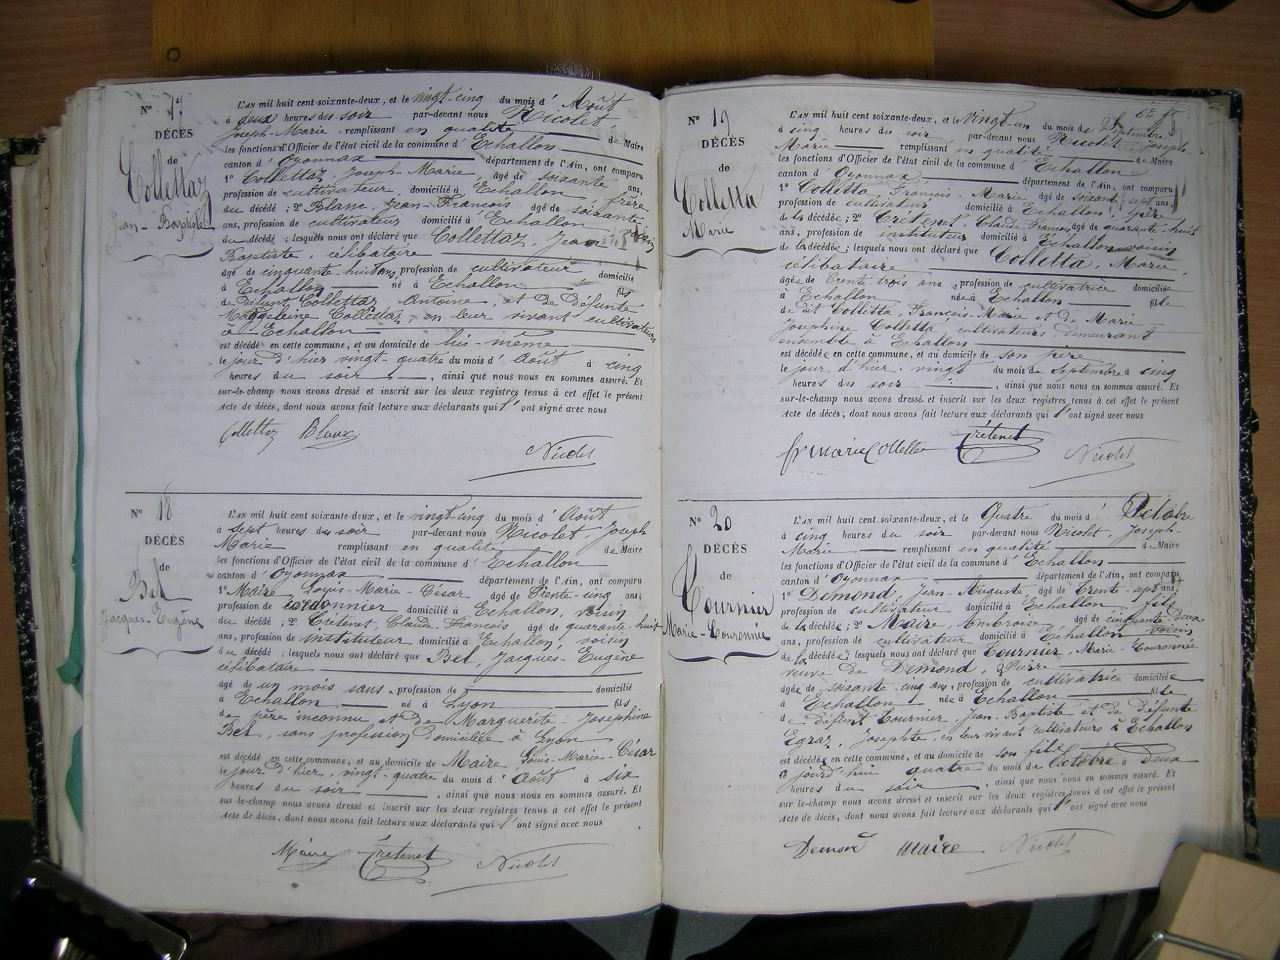 N° 17
DÉCÈS
de
Collettaz
Jean-Baptiste
L'AN mil huit cent soixante-deux, et le vingt-cinq du mois d'Août
à deux heures des soir par-devant nous Nicolet
Joseph-Marie, remplissant en qualité de Maire
les fonctions d'Officier de l'état civil de la commune d'Echallon
canton d'Oyonnax département de l'Ain, ont comparu
1° Collettaz, Joseph-Marie, âgé de soixante ans,
profession de cultivateur, domicilié à Echallon, frère
du décédé; 2° Blanc, Jean-François âgé de soixante
ans, profession de cultivateur domicilié à Echallon voisin
du décédé; lesquels nous ont déclaré que Collettaz, Jean
Baptiste, célibataire
âgé de cinquante huit ans, profession de cultivateur domicilié
à Echallon né à Echallon fils
de défunt Collettaz Antoine, et de défunte
Magdeleine Collettaz, en leur vivant cultivateurs
à Echallon
est décédé en cette commune, et au domicile de lui-même
le jour d'hier vingt-quatre du mois d'Août à cinq
heures du soir, ainsi que nous nous en sommes assuré. Et
sur-le-champ nous avons dressé et inscrit sur les deux registres tenus à cet effet le présent
Acte de décès, dont nous avons fait lecture aux déclarants qui l'ont signé avec nous
Collettaz Blanc
Nicolet
N° 18
DÉCÈS
de
Bel
Jacques-Eugène
L'AN mil huit cent soixante-deux, et le vingt-cinq du mois d'Août
à sept heures des soir par-devant nous Nicolet-Joseph
Marie remplissant en qualité de Maire
les fonctions d'Officier de l'état civil de la commune d'Echallon
canton d'Oyonnax département de l'Ain, ont comparu
1° Maire, Louis-Marie-César âgé de trente-cinq ans,
profession de cordonnier domicilié à Echallon, voisin
du décédé; 2° Crétenet, Claude-François âgé de quarante-huit
ans, profession de instituteur domicilié à Echallon, voisin
du décédé; lesquels nous ont déclaré que Bel, Jacques-Eugène
célibataire
âgé de un mois sans profession de domicilié
à Echallon né à Lyon fils
de père inconnu et de Marguerite-Josephine
Bel, sans profession domiciliée à Lyon
est décédé en cette commune, et au domicile de Maire, Louis-Marie-César
le jour d'hier, vingt-quatre du mois d'Août à six
heures du soir, ainsi que nous nous en sommes assuré. Et
sur-le-champ nous avons dressé et inscrit sur les deux registres tenus à cet effet le présent
Acte de décès, dont nous avons fait lecture aux déclarants qui l'ont signé avec nous
Maire Crétenet Nicolet
N° 19
DÉCÈS
de
Colletta
Marie
L'AN mil huit cent soixante-deux, et le vingt-un du mois de Septembre
à cinq heures des soir par-devant nous Nicolet-Joseph
Marie remplissant en qualité de Maire
les fonctions d'Officier de l'état civil de la commune d'Echallon
canton d'Oyonnax département de l'Ain, ont comparu
1° Colletta, François-Marie âgé de soixante-sept ans,
profession de cultivateur domicilié à Echallon, père
de la décédée; 2° Crétenet, Claude-François âgé de quarante-huit
ans, profession de instituteur domicilié à Echallon voisin
de la décédée; lesquels nous ont déclaré que Colletta, Marie
célibataire
âgée de trente trois ans, profession de cultivatrice domiciliée
à Echallon née à Echallon fille
de dit Colletta, François-Marie et de Marie
Josephine Colletta, cultivateurs demeurant
ensemble à Echallon
est décédée en cette commune, et au domicile de son père
le jour d'hier vingt du mois de Septembre à cinq
heures des soir, ainsi que nous nous en sommes assuré. Et
sur-le-champ nous avons dressé et inscrit sur les deux registres tenus à cet effet le présent
Acte de décès, dont nous avons fait lecture aux déclarants qui l'ont signé avec nous
fr marie Colletta Crétenet Nicolet
N° 20
DÉCÈS
de
Tournier
Marie-Couronnée
L'AN mil huit cent soixante-deux, et le Quatre du mois d'Octobre
à cinq heures du soir par-devant nous Nicolet, Joseph-
Marie remplissant en qualité de Maire
les fonctions d'Officier de l'état civil de la commune d'Echallon
canton d'Oyonnax département de l'Ain, ont comparu
1° Demond, Jean-Auguste, âgé de trente-sept ans,
profession de cultivateur domicilié à Echallon, fils
de la décédée; 2° Maire, Ambroise âgé de cinquante-deux
ans, profession de cultivateur domicilié à Echallon voisin
de la décédée; lesquels nous ont déclaré que Tournier, Marie-Couronnée
veuve de Demond, Pierre
âgée de soixante-cinq ans, profession de cultivatrice domiciliée
à Echallon née à Echallon fille
de défunt Tournier, Jean-Baptiste et de défunte
Egraz, Josephte, en leur vivant cultivateurs à Echallon
est décédée en cette commune, et au domicile de son fils
aujourd'hui quatre du mois de Octobre à deux
heures du soir, ainsi que nous nous en sommes assuré. Et
sur-le-champ nous avons dressé et inscrit sur les deux registres tenus à cet effet le présent
Acte de décès, dont nous avons fait lecture aux déclarants qui l'ont signé avec nous
Demond Maire Nicolet